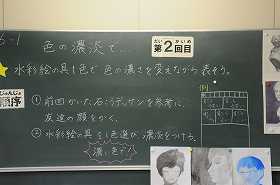 6-1
色の濃淡で…
だい かいめ
第2回目
水彩絵の具1色で色の濃さを変えながら表そう。
順序
①前回かいた石こうデッサンを参考に、
友達の顔をかく。
②水彩絵の具を1色選び、濃淡をつけよう。